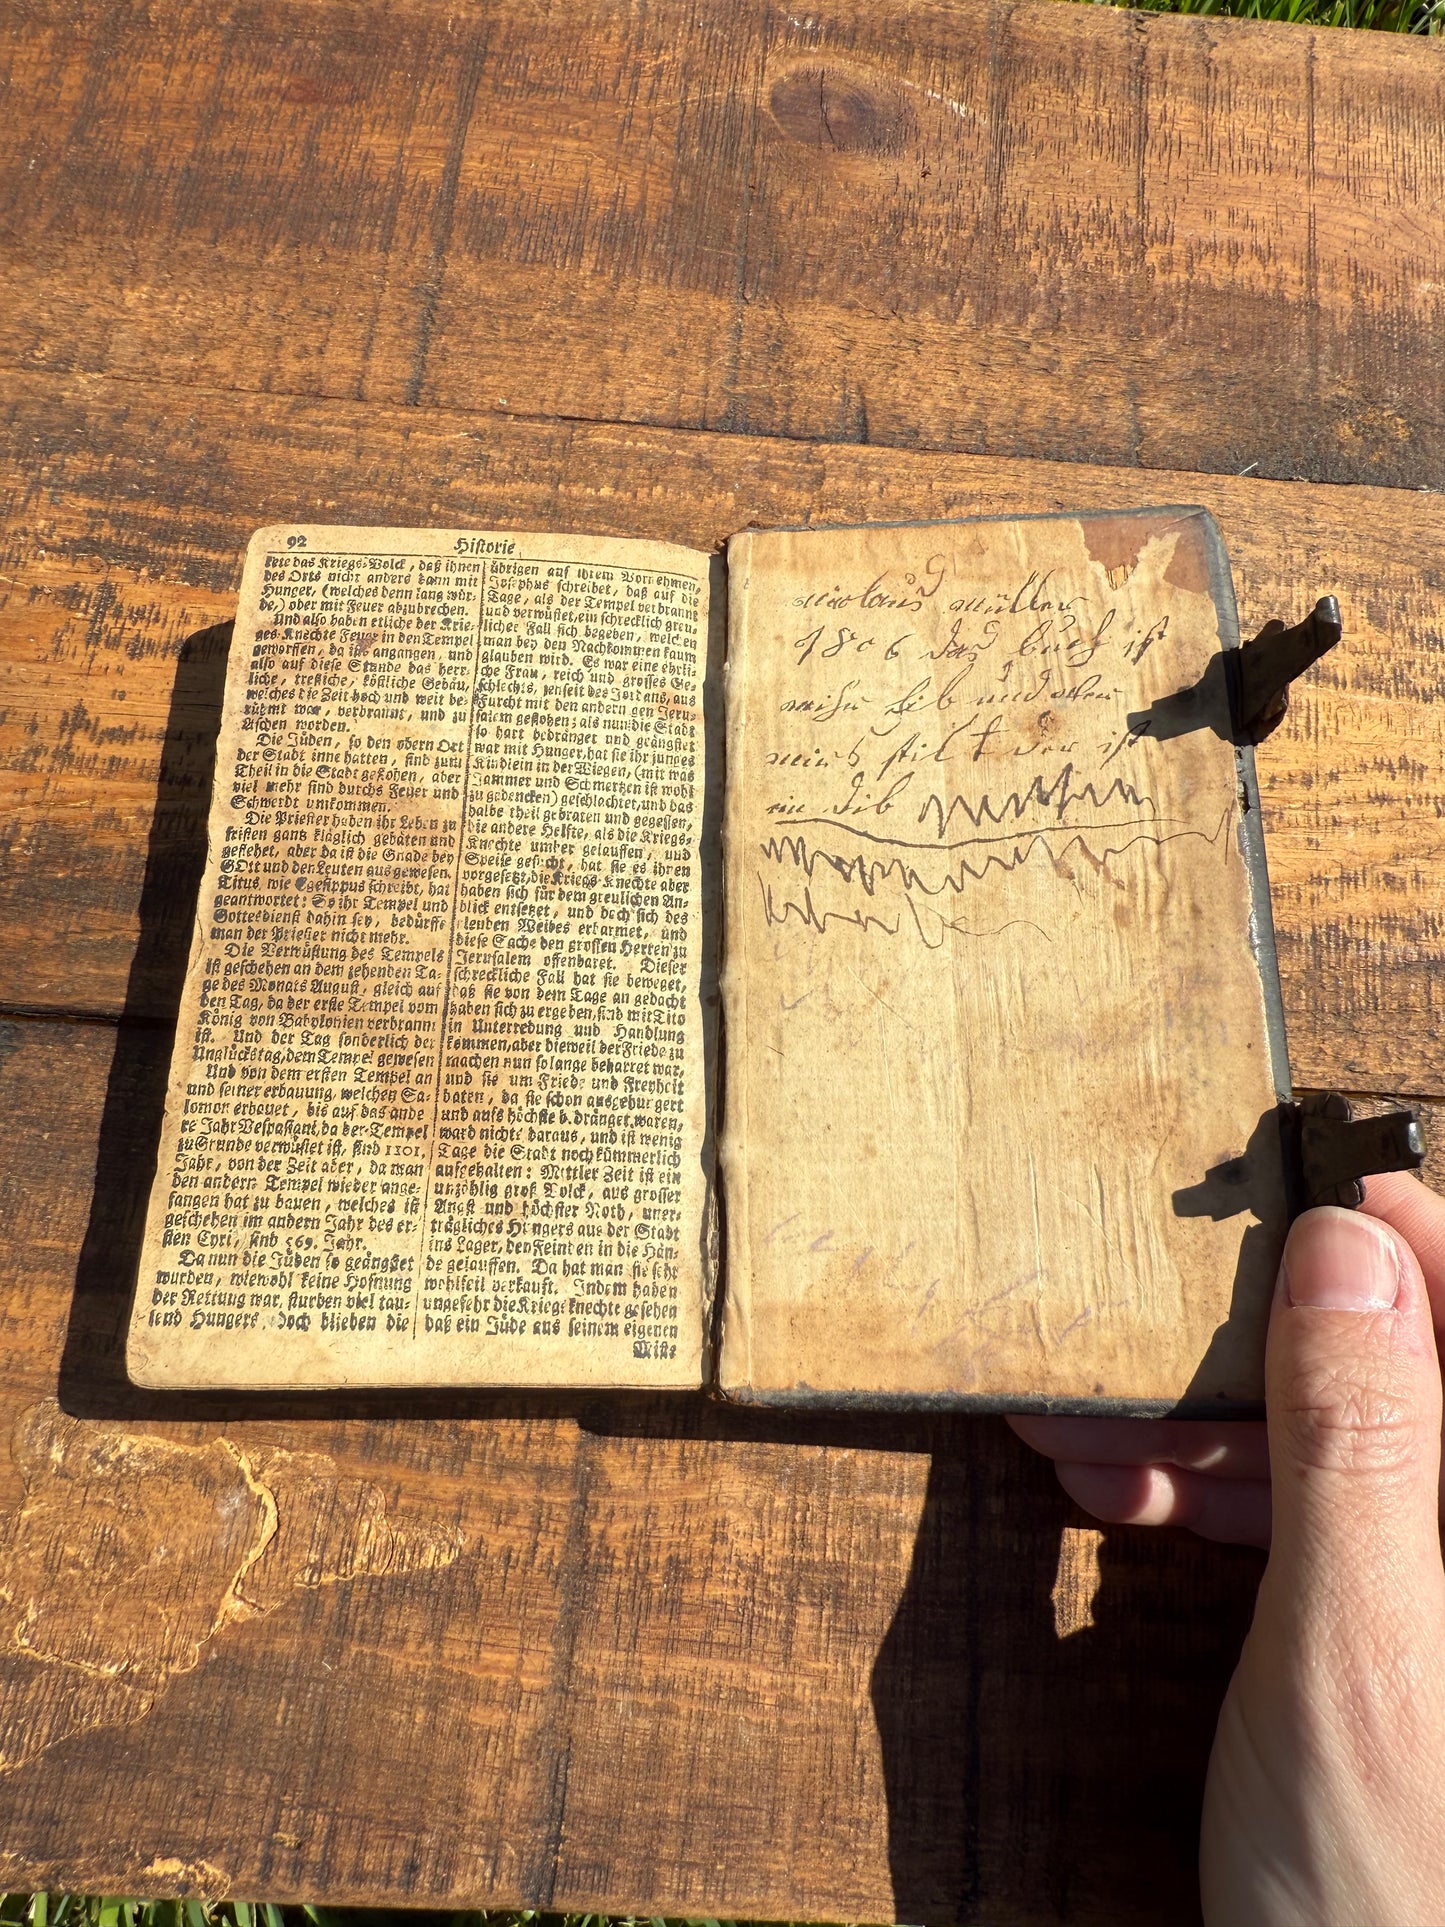 92
Historie
kete das Kriegs-Volck, daß ihnen
des Orts nicht anders kann mit
Hunger, (welches denn lang wür-
de,) oder mit Feuer abzubrechen.
Und also haben etliche der Krie-
ges Knechte Feuer in den Tempel
geworffen, da ist angangen, und
also auf diese Stunde das herr-
liche, trefliche, köstliche Gebäu,
welches die Zeit hoch und weit be-
rühmt war, verbrannt, und zu
Aschen worden.
Die Jüden, so den obern Ort
der Stadt inne hatten, sind zum
Theil in die Stadt geflohen, aber
viel mehr sind durchs Feuer und
Schwerdt umkommen.
Die Priester haben ihr Leben zu
fristen gantz kläglich gebäten und
geflehet, aber da ist die Gnade bey
GOtt und den Leuten aus gewesen.
Titus, wie Egesippus schreibt, hat
geantwortet: So ihr Tempel und
Gottesdienst dahin sey, bedürffe
man der Priester nicht mehr.
Die Verwüstung des Tempels
ist geschehen an dem zehenden Ta-
ge des Monats August, gleich auf
den Tag, da der erste Tempel vom
König von Babylonien verbrannt
ist. Und der Tag sonderlich der
Unglückstag, dem Tempel gewesen
Und von dem ersten Tempel an
und seiner erbauung, welchen Sa-
lomon erbauet, bis auf das ande
re Jahr Vespasiani, da der Tempel
zu Grunde verwüstet ist, sind 1101.
Jahr, von der Zeit aber, da man
den andern Tempel wieder ange-
fangen hat zu bauen, welches ist
geschehen im andern Jahr des er-
sten Cyri, sind 569. Jahr.
Da nun die Jüden so geängstet
wurden, wiewohl keine Hofnung
der Rettung war, sturben viel tau-
send Hungers. Doch blieben die
übrigen auf ihrem Vornehmen,
Josephus schreibet, daß auf die
Tage, als der Tempel verbrannt
und verwüstet, ein schrecklich greu-
licher Fall sich begeben, welchen
man bey den Nachkommen kaum
glauben wird. Es war eine ehrli-
che Frau, reich und grosses Ge-
schlechts, jenseit des Jordans, aus
Furcht mit den andern gen Jeru-
salem geflohen; als nun die Stadt
so hart bedränget und geängstet
war mit Hunger, hat sie ihr junges
Kindlein in der Wiegen, (mit was
Jammer und Schmertzen ist wohl
zu gedencken) geschlachtet, und das
halbe theil gebraten und gegessen,
die andere Helfte, als die Kriegs-
Knechte umher gelauffen, und
Speise gesucht, hat sie es ihren
vorgesetzt, die Kriegs-Knechte aber
haben sich für dem greulichen An-
blick entsetzet, und doch sich des
elenden Weibes erbarmet, und
diese Sache den grossen Herren zu
Jerusalem offenbaret. Dieser
schreckliche Fall hat sie beweget,
daß sie von dem Tage an gedacht
haben sich zu ergeben, sind mit Tito
in Unterredung und Handlung
kommen, aber dieweil der Friede zu
machen nun so lange beharret war,
und sie um Friede und Freyheit
baten, da sie schon ausgehungert
und aufs höchste bedränget waren,
ward nichts daraus, und ist wenig
Tage die Stadt noch kümmerlich
aufgehalten: Mittler Zeit ist ein
unzählig groß Volck, aus grosser
Angst und höchster Noth, uner-
trägliches Hungers aus der Stadt
ins Lager, den Feinden in die Hän-
de gelauffen. Da hat man sie sehr
wohlfeil verkauft. Indem haben
ungefehr die Kriegsknechte gesehen
daß ein Jüde aus seinem eigenen
Miste
nicolaus müller
1806 das buch ist
mihr lib und wer
mirs stilt der ist
ein dib